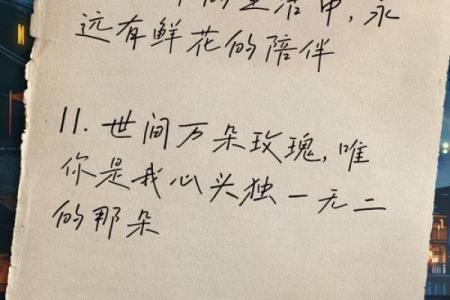 的生活中,永
远有鲜花的陪伴
11. 世间万朵玫瑰,唯
你是我心头独一无二
的那朵